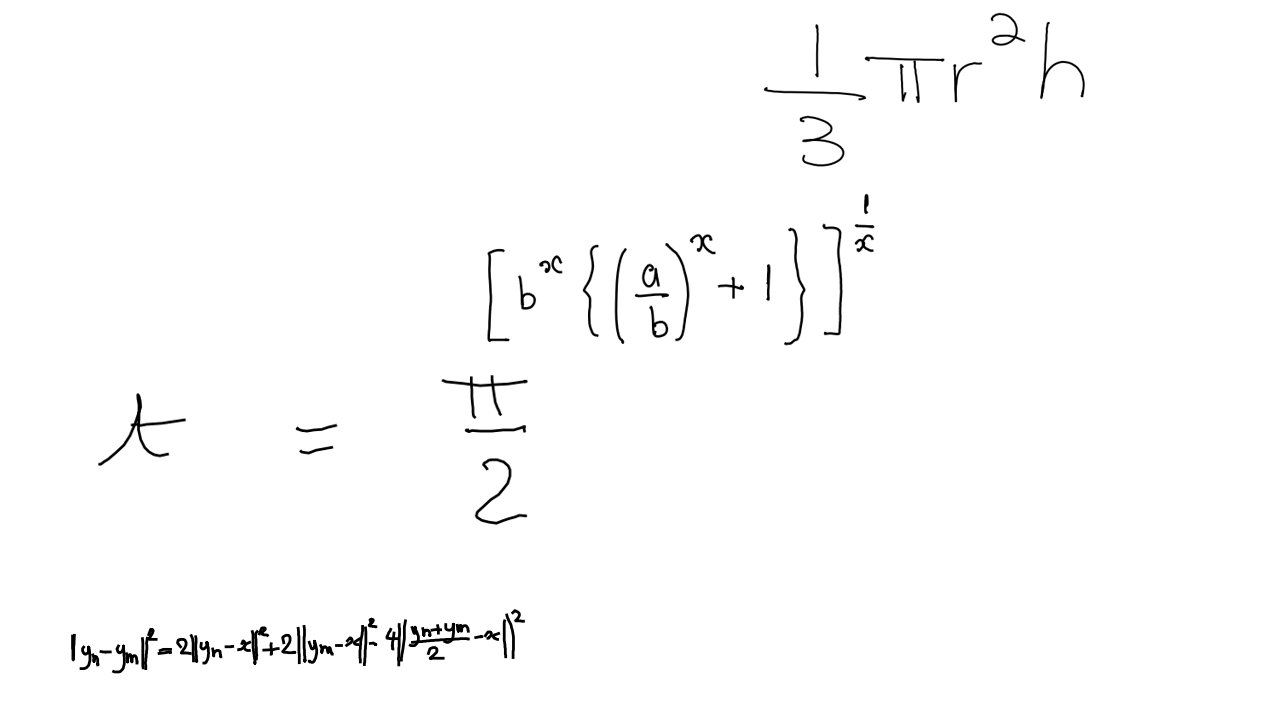 \frac{1}{3} \pi r^2 h
\left[ b^x \left\{ \left( \frac{a}{b} \right)^x + 1 \right\} \right]^{\frac{1}{x}}
t = \frac{\pi}{2}
\| y_n - y_m \|^2 = 2 \| y_n - x \|^2 + 2 \| y_m - x \|^2 - 4 \| \frac{y_n + y_m}{2} - x \|^2